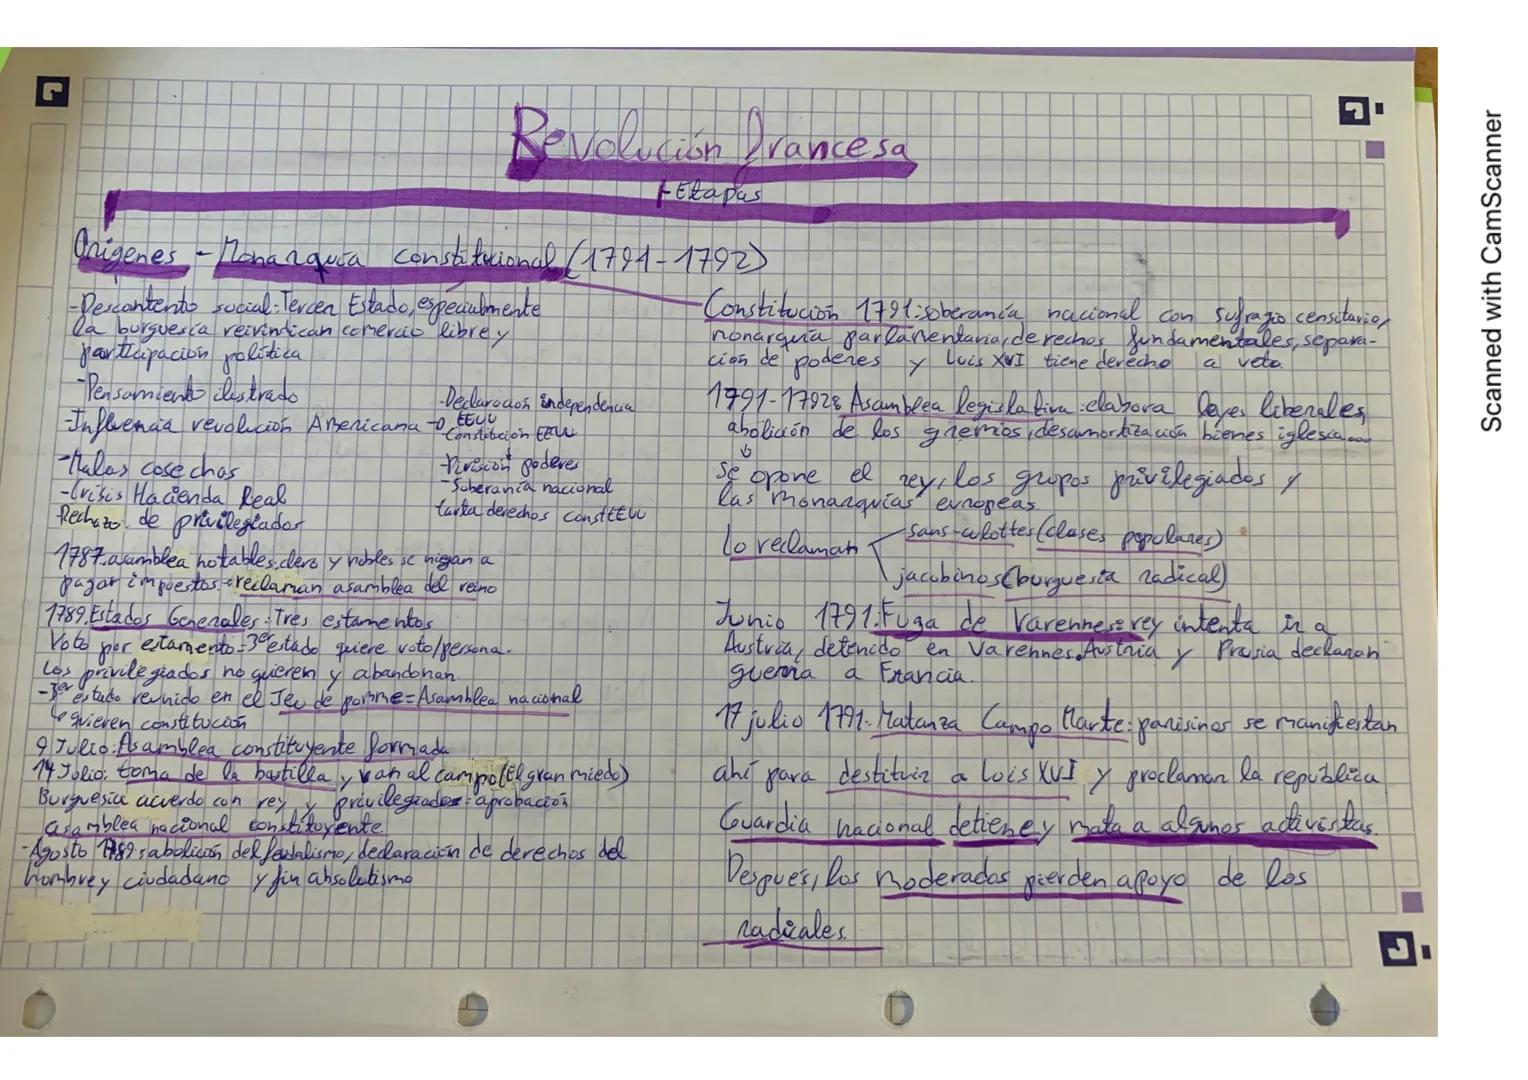 Revolución francesa
Etapas
Orígenes - Monarquía constitucional (1791-1792)
-Descontento social: Tercer Estado, especialmente
la burguesía reivindican comercio libre y
participación política
-Pensamiento ilustrado
-Influencia revolución Americana
-Declaración independencia
EEUU
Constitución EEUU
-División poderes
-Soberanía nacional
Carta derechos constEEUU
-Malas cosechas
-Crisis Hacienda Real
Rechazo de privilegiados
1787: asamblea notables: clero y nobles se niegan a
pagar impuestos reclaman asamblea del reino
1789: Estados Generales: Tres estamentos
Voto por estamento - 3er estado quiere voto/persona.
Los privilegiados no quieren y abandonan.
-3er estado reunido en el Jeu de pomme = Asamblea nacional
quieren constitución
9 Julio: Asamblea constituyente formada
14 Julio: toma de la bastilla y van al campo (El gran miedo)
Burguesía acuerdo con rey y privilegiados: aprobación
asamblea nacional constituyente.
-Agosto 1789: abolición del feudalismo, declaración de derechos del
hombre y ciudadano y fin absolutismo
Constitución 1791: soberanía nacional con sufragio censitario,
monarquía parlamentaria, derechos fundamentales, separa-
ción de poderes y Luis XVI tiene derecho a veto.
1791-1792: Asamblea legislativa: elabora leyes liberales,
abolición de los gremios, desamortización bienes iglesia...
Se opone el rey, los grupos privilegiados y
las monarquías europeas.
Lo reclaman
sans-culottes (clases populares)
jacobinos (burguesía radical)
Junio 1791: Fuga de Varennes: rey intenta ir a
Austria, detenido en Varennes. Austria y Prusia declaran
guerra a Francia.
17 julio 1791- Matanza Campo Marte: parisinos se manifiestan
ahí para destituir a Luis XVI y proclaman la república
Guardia nacional detiene y mata a algunos activistas.
Después, los moderados pierden apoyo de los
radicales.
Scanned with CamScanner